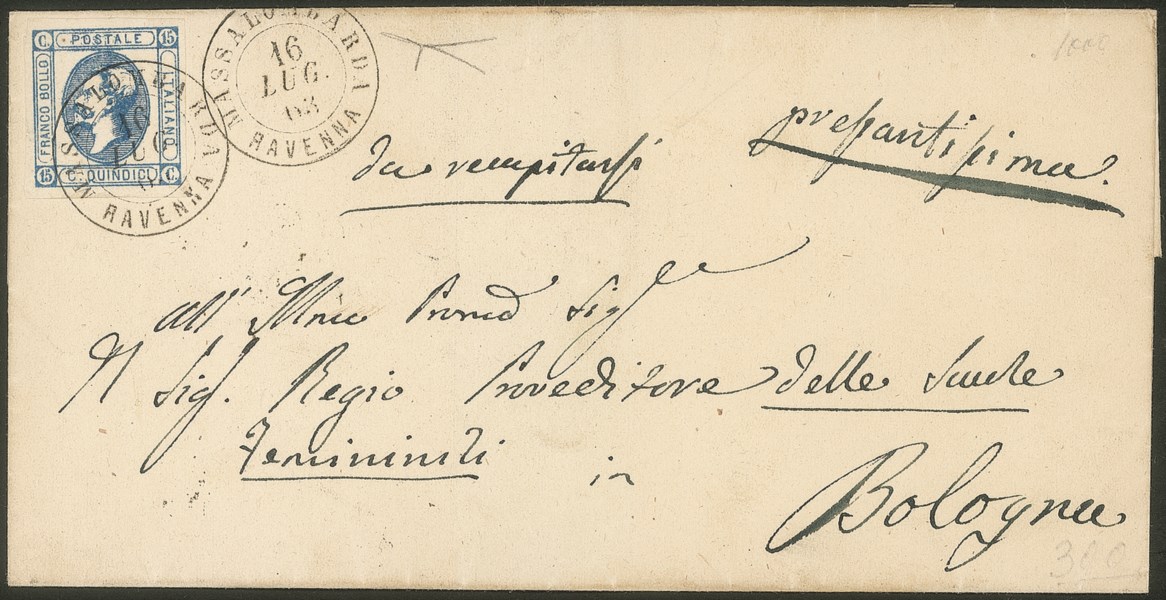 C. POSTALE 15
FRANCO BOLLO
ITALIANO
15 C. QUINDICI C.
MASSALOMBARDA
16
LUG.
63
RAVENNA
MASSALOMBARDA
16
LUG
RAVENNA
1000
da recapitarsi
pressantissima.
all' Illmo Sig
Al Sig. Regio Proveditore delle Scuole
Feminili in
Bologna
300